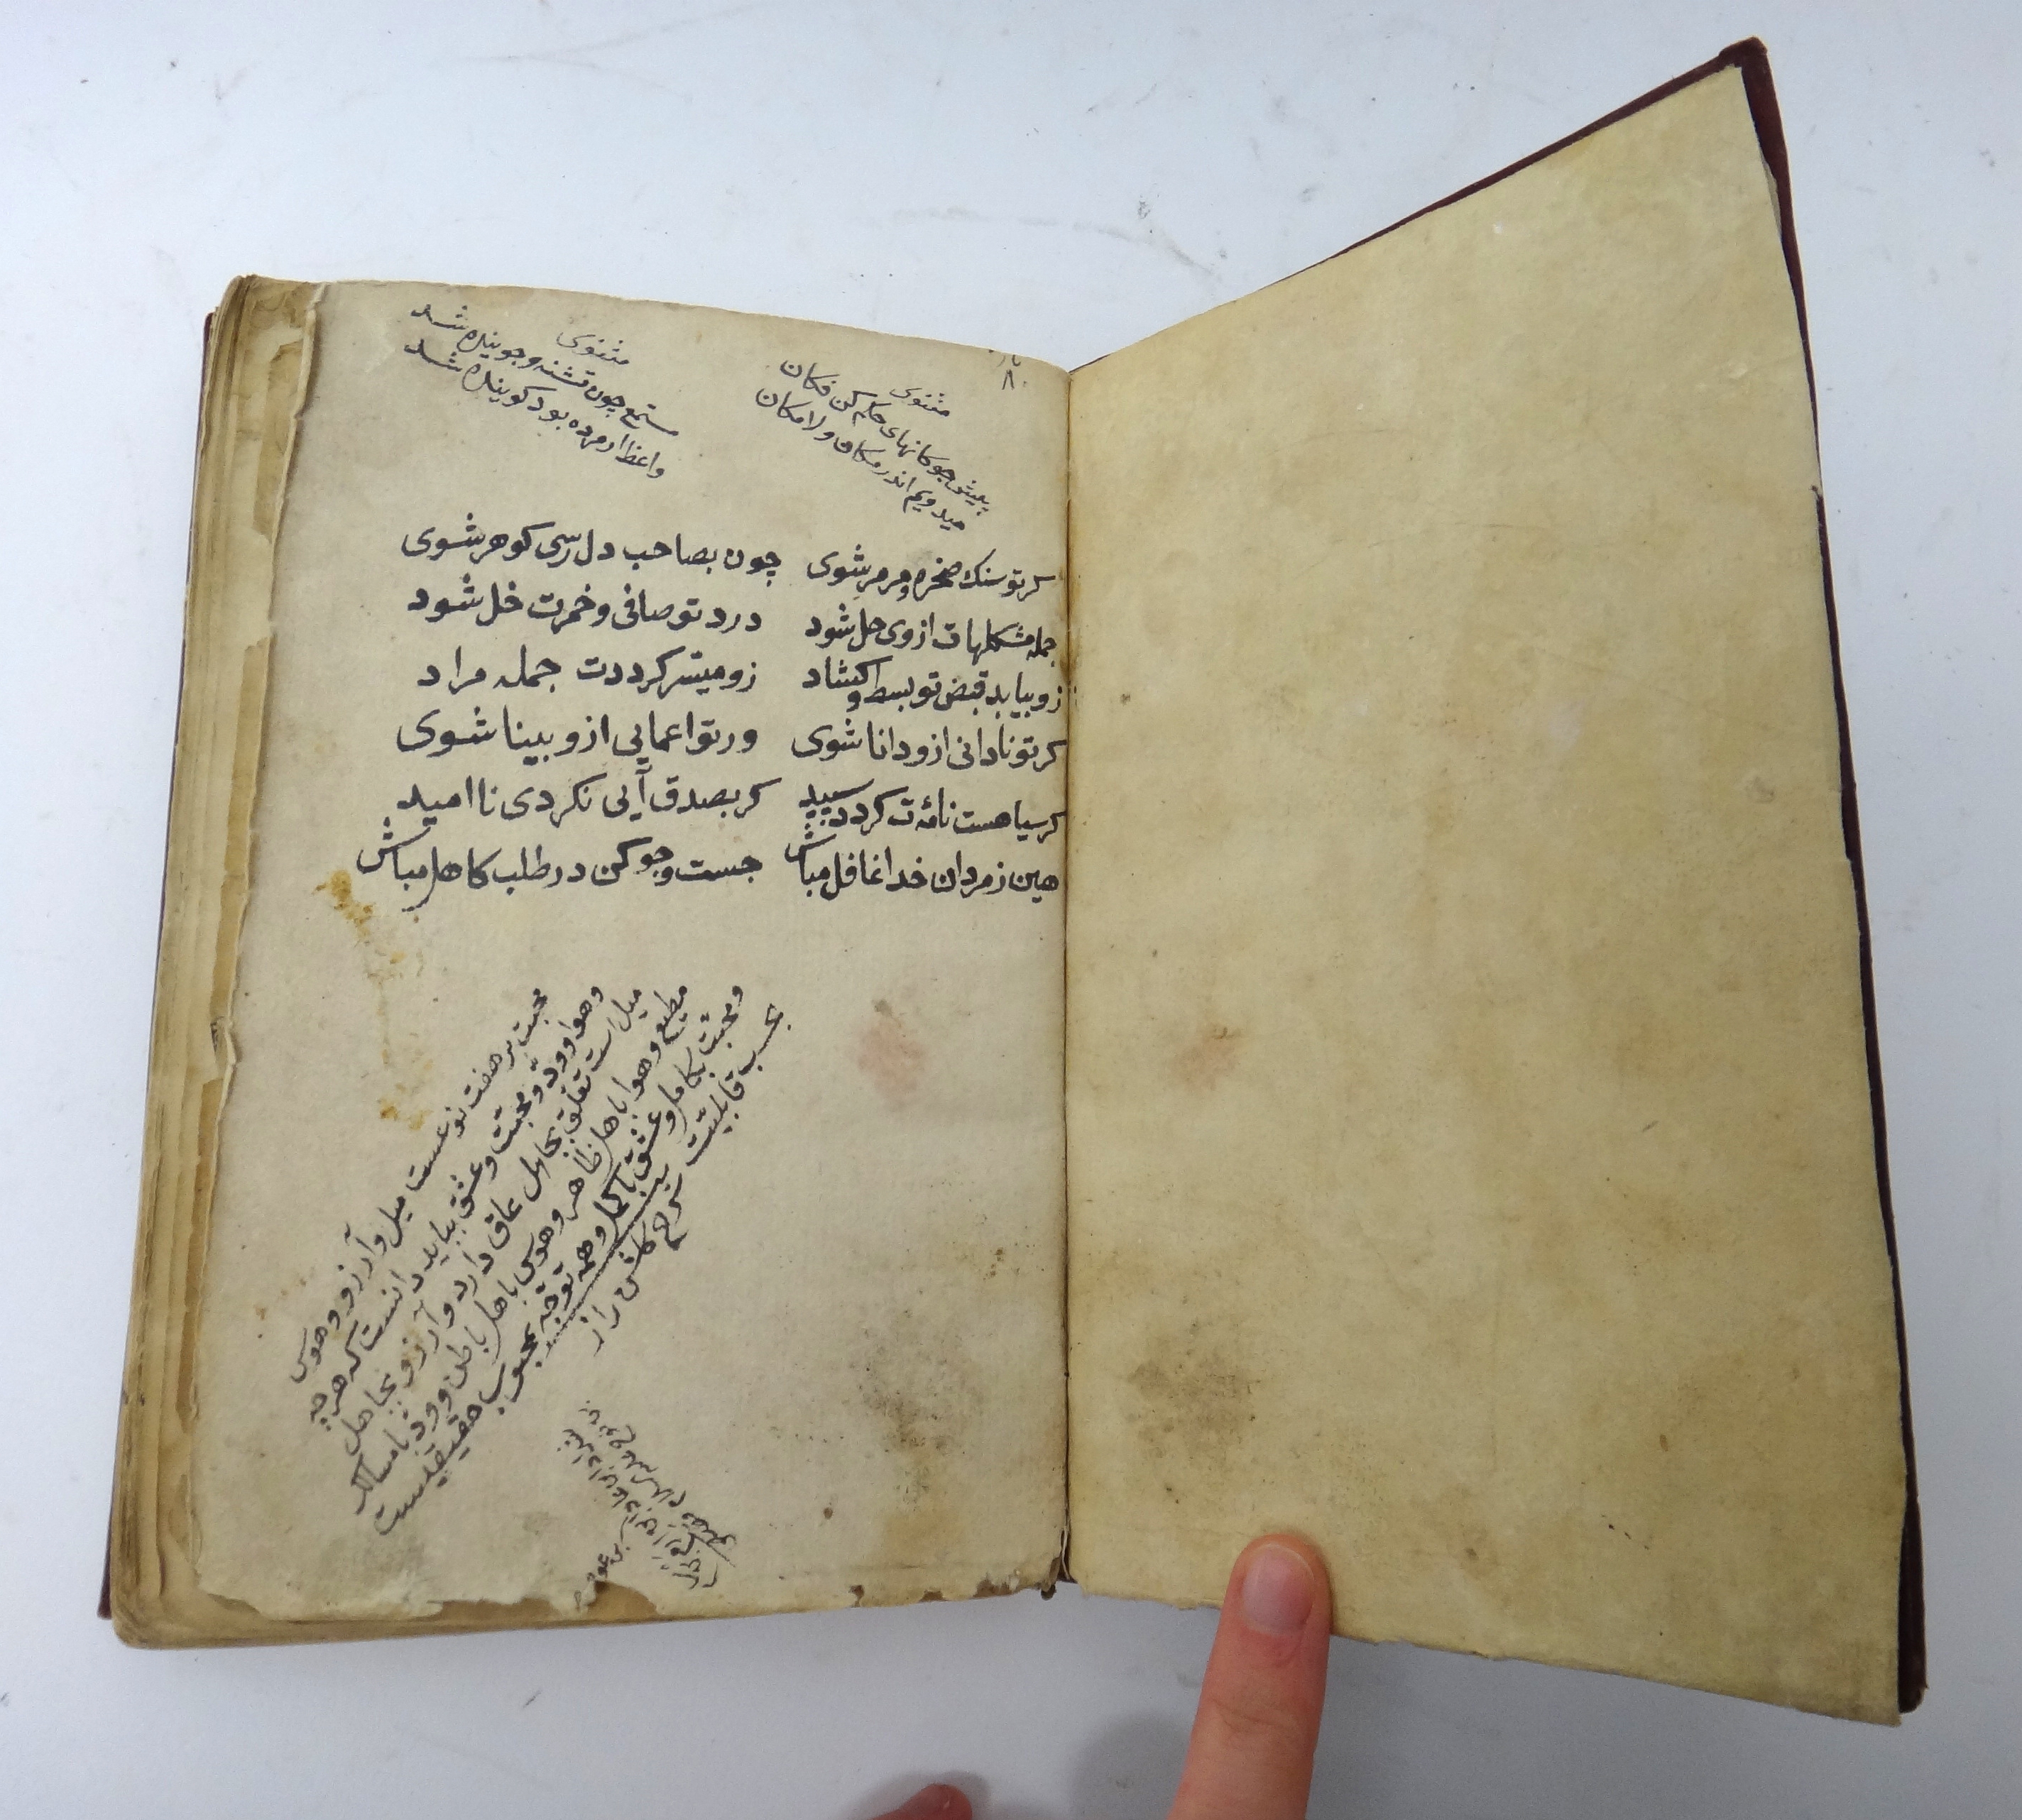 مثنوی
پیش چوکانهای حکم کن فکان
میدویم اندر مکان و لامکان
مثنوی
مستمع چون تشنه و جوینده شد
واعظ ار مرده بود کوینده شد
کر تو سنک صخره و مرمر شوی چون بصاحب دل رسی کوهر شوی
جمله مشکلهات از وی حل شود درد تو صافی و خمرت خل شود
زو بیابد قبض تو بسط و کشاد زو میسّر کرددت جمله مراد
کر تو نادانی ازو دانا شوی ور تو اعمایی ازو بینا شوی
کر سیاهست نامهٔ ت کردد سپید کر بصدق آیی نکردی نا امید
هین ز مردان خدا غافل مباش جست و جو کن در طلب کاهل مباش
محبت بر هفت نوعست میل و آرزو و هوس
و هوا و ودّ و محبّت و عشق بباید دانست که هر چه
میل است تعلّق بجاهل عاق دارد و آرزو بجاهل
مطیع و هوا باهل ظاهر و هوس باهل باطن و ودّ با سالک
و محبّت بکامل و عشق با کمل و همه توجّه بمحبوب حقیقیست
بحسب قابلیّت
شرح کلشن راز